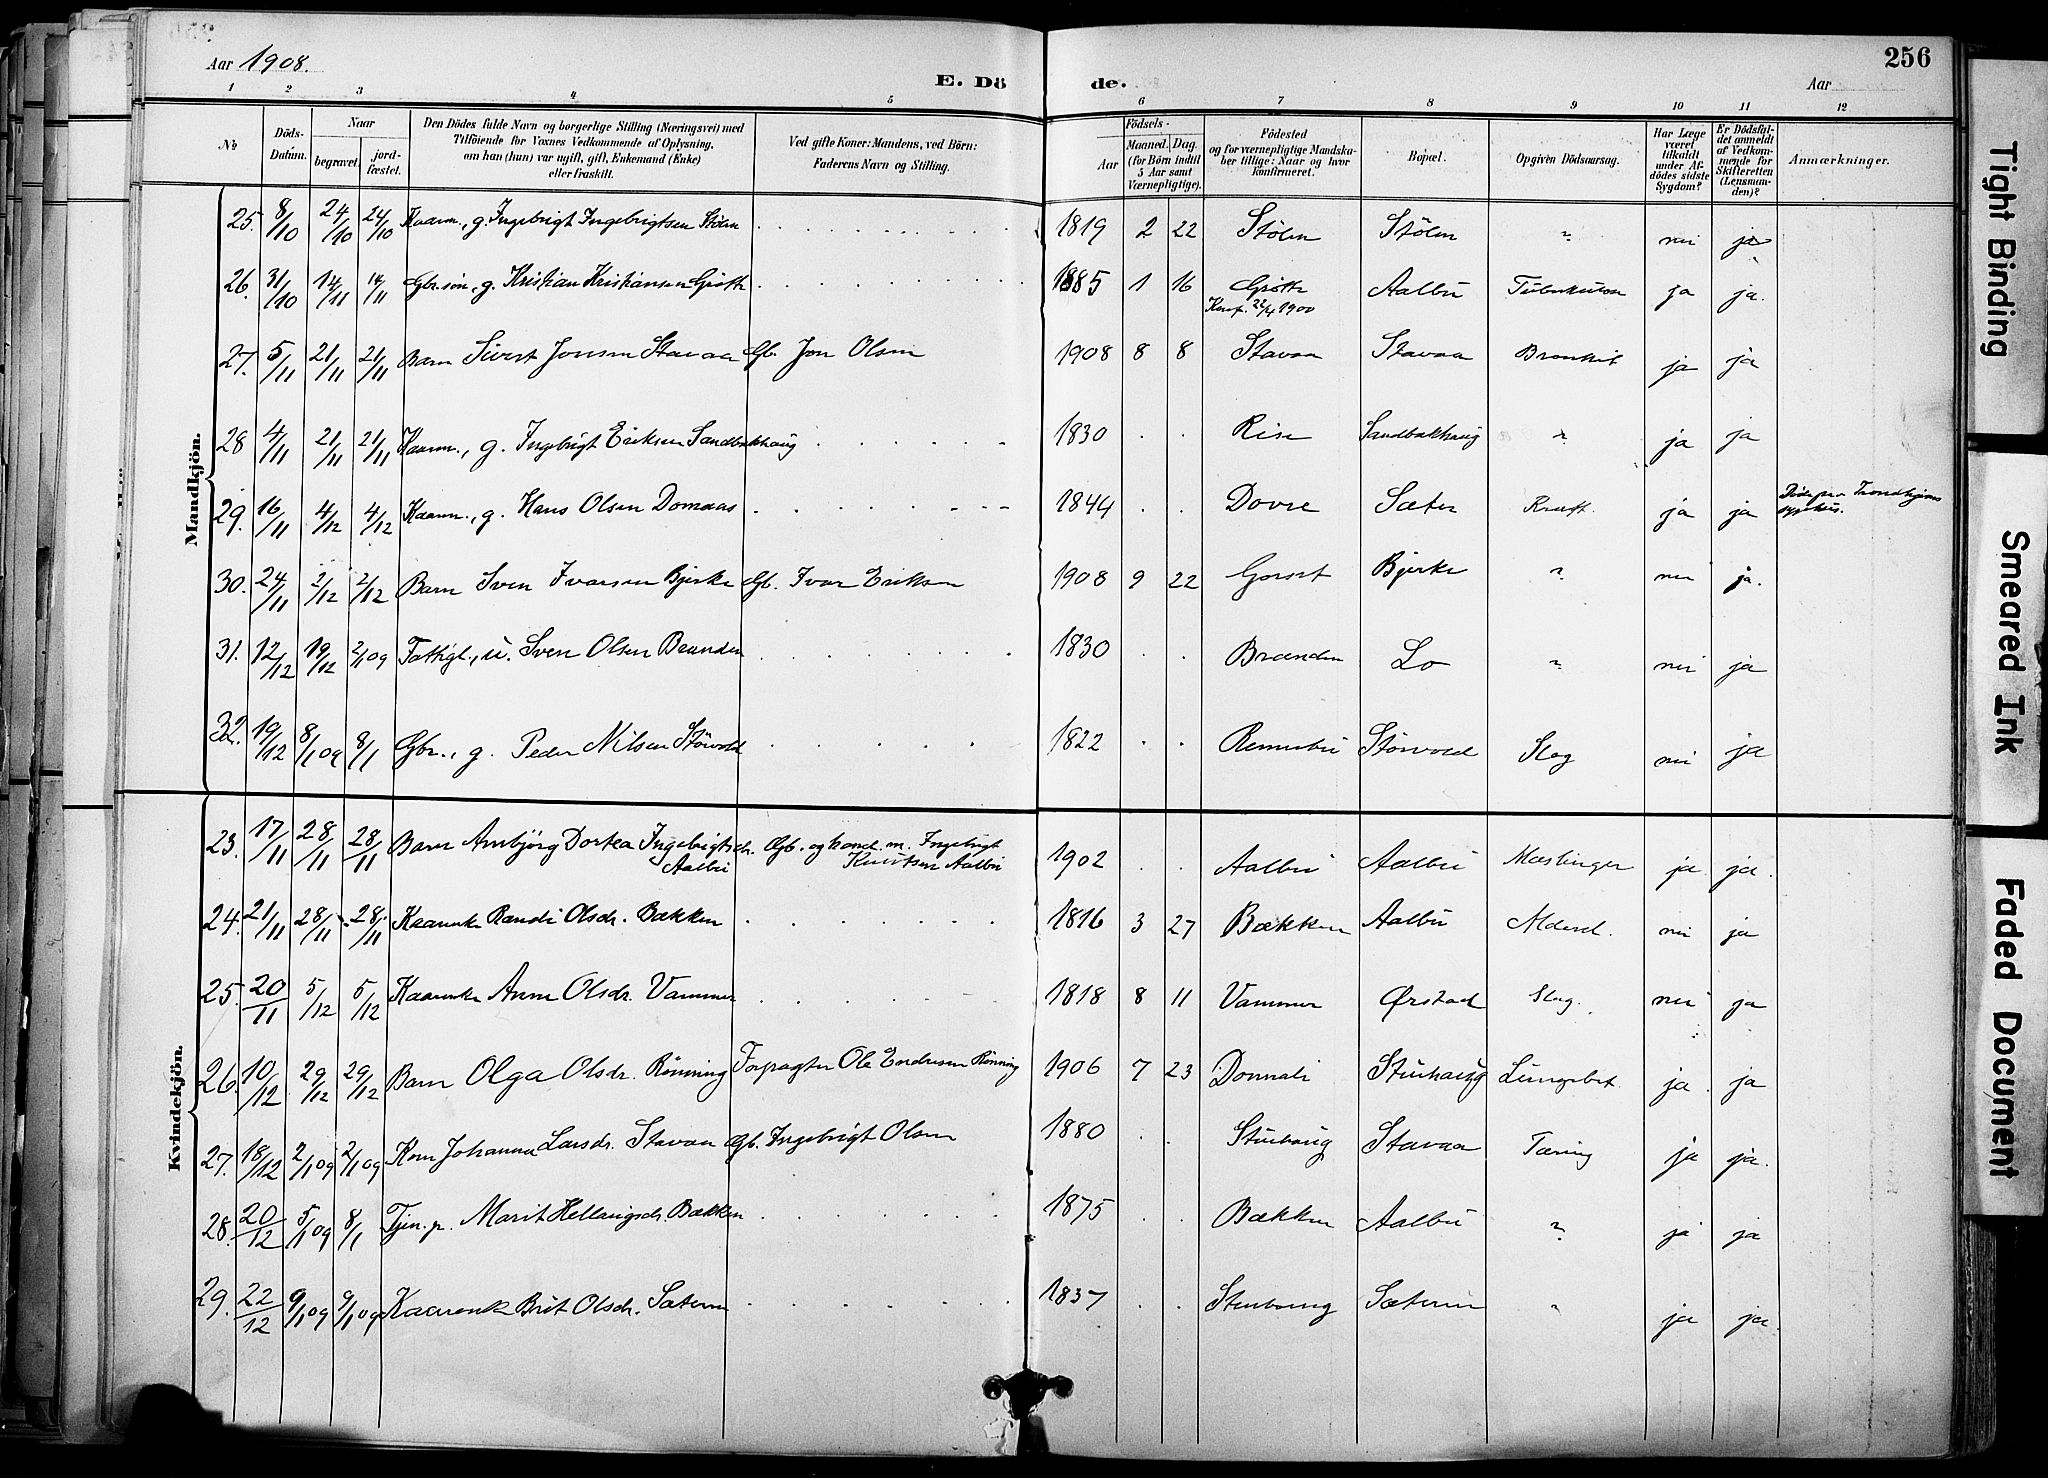 Aar 1908.
E. Dö de.
Aar
256
1 2 3 4 5 6 7 8 9 10 11 12
No
Döds-Datum.
Naar
begravet.
jordfæstet.
Den Dödes fulde Navn og borgerlige Stilling (Næringsvei) med
Tilföiende for Voxnes Vedkommende af Oplysning,
om han (hun) var ugift, gift, Enkemand (Enke)
eller fraskilt.
Ved gifte Koner: Mandens, ved Börn:
Faderens Navn og Stilling.
Födsels-
Aar
Maaned. Dag.
(for Börn indtil
5 Aar samt
Værnepligtige).
Födested
og for værnepligtige Mandskaber tillige: Naar og hvor
konfirmeret.
Bopæl.
Opgiven Dödsaarsag.
Har Læge været tilkaldt under Afdödes sidste Sygdom?
Er Dödsfaldet anmeldt af Vedkommende for Skifteretten (Lensmanden)?
Anmærkninger.
Mandkjön.
25. 8/10 24/10 24/10 Kaarm., g. Ingebrigt Ingebrigtsen Stölen 1819 2 22 Stölen Stölen " nei ja
26. 31/10 14/11 14/11 Gbr.sön, g. Kristian Kristiansen Grötte 1885 1 16 Grötte Aalbu Tuberkulose ja ja.
Konf. 22/4 1900
27. 5/11 21/11 21/11 Barn Sivert Jonsen Stavaa Gb. Jon Olsen 1908 8 8 Stavaa Stavaa Bronkit ja ja
28 4/11 21/11 21/11 Kaarm., g. Ingebrigt Eriksen Sandbakhaug 1830 Rise Sandbakhaug " ja ja
29. 16/11 4/12 4/12 Kaarm., g. Hans Olsen Domaas 1844 Dovre Sæter Kræft. ja ja Döde paa Trondhjems
sygehus.
30. 24/11 2/12 2/12 Barn Sven Ivarsen Bjerke Gb. Ivar Eriksen 1908 9 22 Gorset Bjerke " nei ja.
31. 12/12 19/12 2/1 09 Fattigl., u. Sven Olsen Brænden 1830 Brænden Lo " nei ja
32. 19/12 8/1 09 8/1 Gbr., g. Peder Nilsen Störvold 1822 Rennebu Störvold Slag nei ja
Kvindekjön.
23. 17/11 28/11 28/11 Barn Ambjörg Dortea Ingebrigtsdr. Gb. og hand.m. Ingebrigt 1902 Aalbu Aalbu Mæslinger ja ja.
Aalbu Knutsen Aalbu
24. 21/11 28/11 28/11 Kaarenke Randi Olsdr. Bækken 1816 3 27 Bækken Aalbu Aldersd. nei ja
25. 20/11 5/12 5/12 Kaarenke Anne Olsdr. Vammer 1818 8 11 Vammer Ørstad Slag. nei ja
26. 10/12 29/12 29/12 Barn Olga Olsdr. Rönning Forpagter Ole Endresen Rönning 1906 7 23 Donnali Stuehaug Lungebet. ja ja
27. 18/12 2/1 09 2/1 09 Kone Johanna Larsdr. Stavaa Gb. Ingebrigt Olsen 1880 Stuehaug Stavaa Tæring ja ja.
28. 20/12 5/1 09 8/1 Tjen.p. Marit Hellaugsdr. Bækken 1875 Bækken Aalbu " ja ja
29. 22/12 9/1 09 9/1 09 Kaarenk Brit Olsdr. Sæteren 1837 Sæteren " ja ja
Tight Binding
Smeared Ink
Faded Document